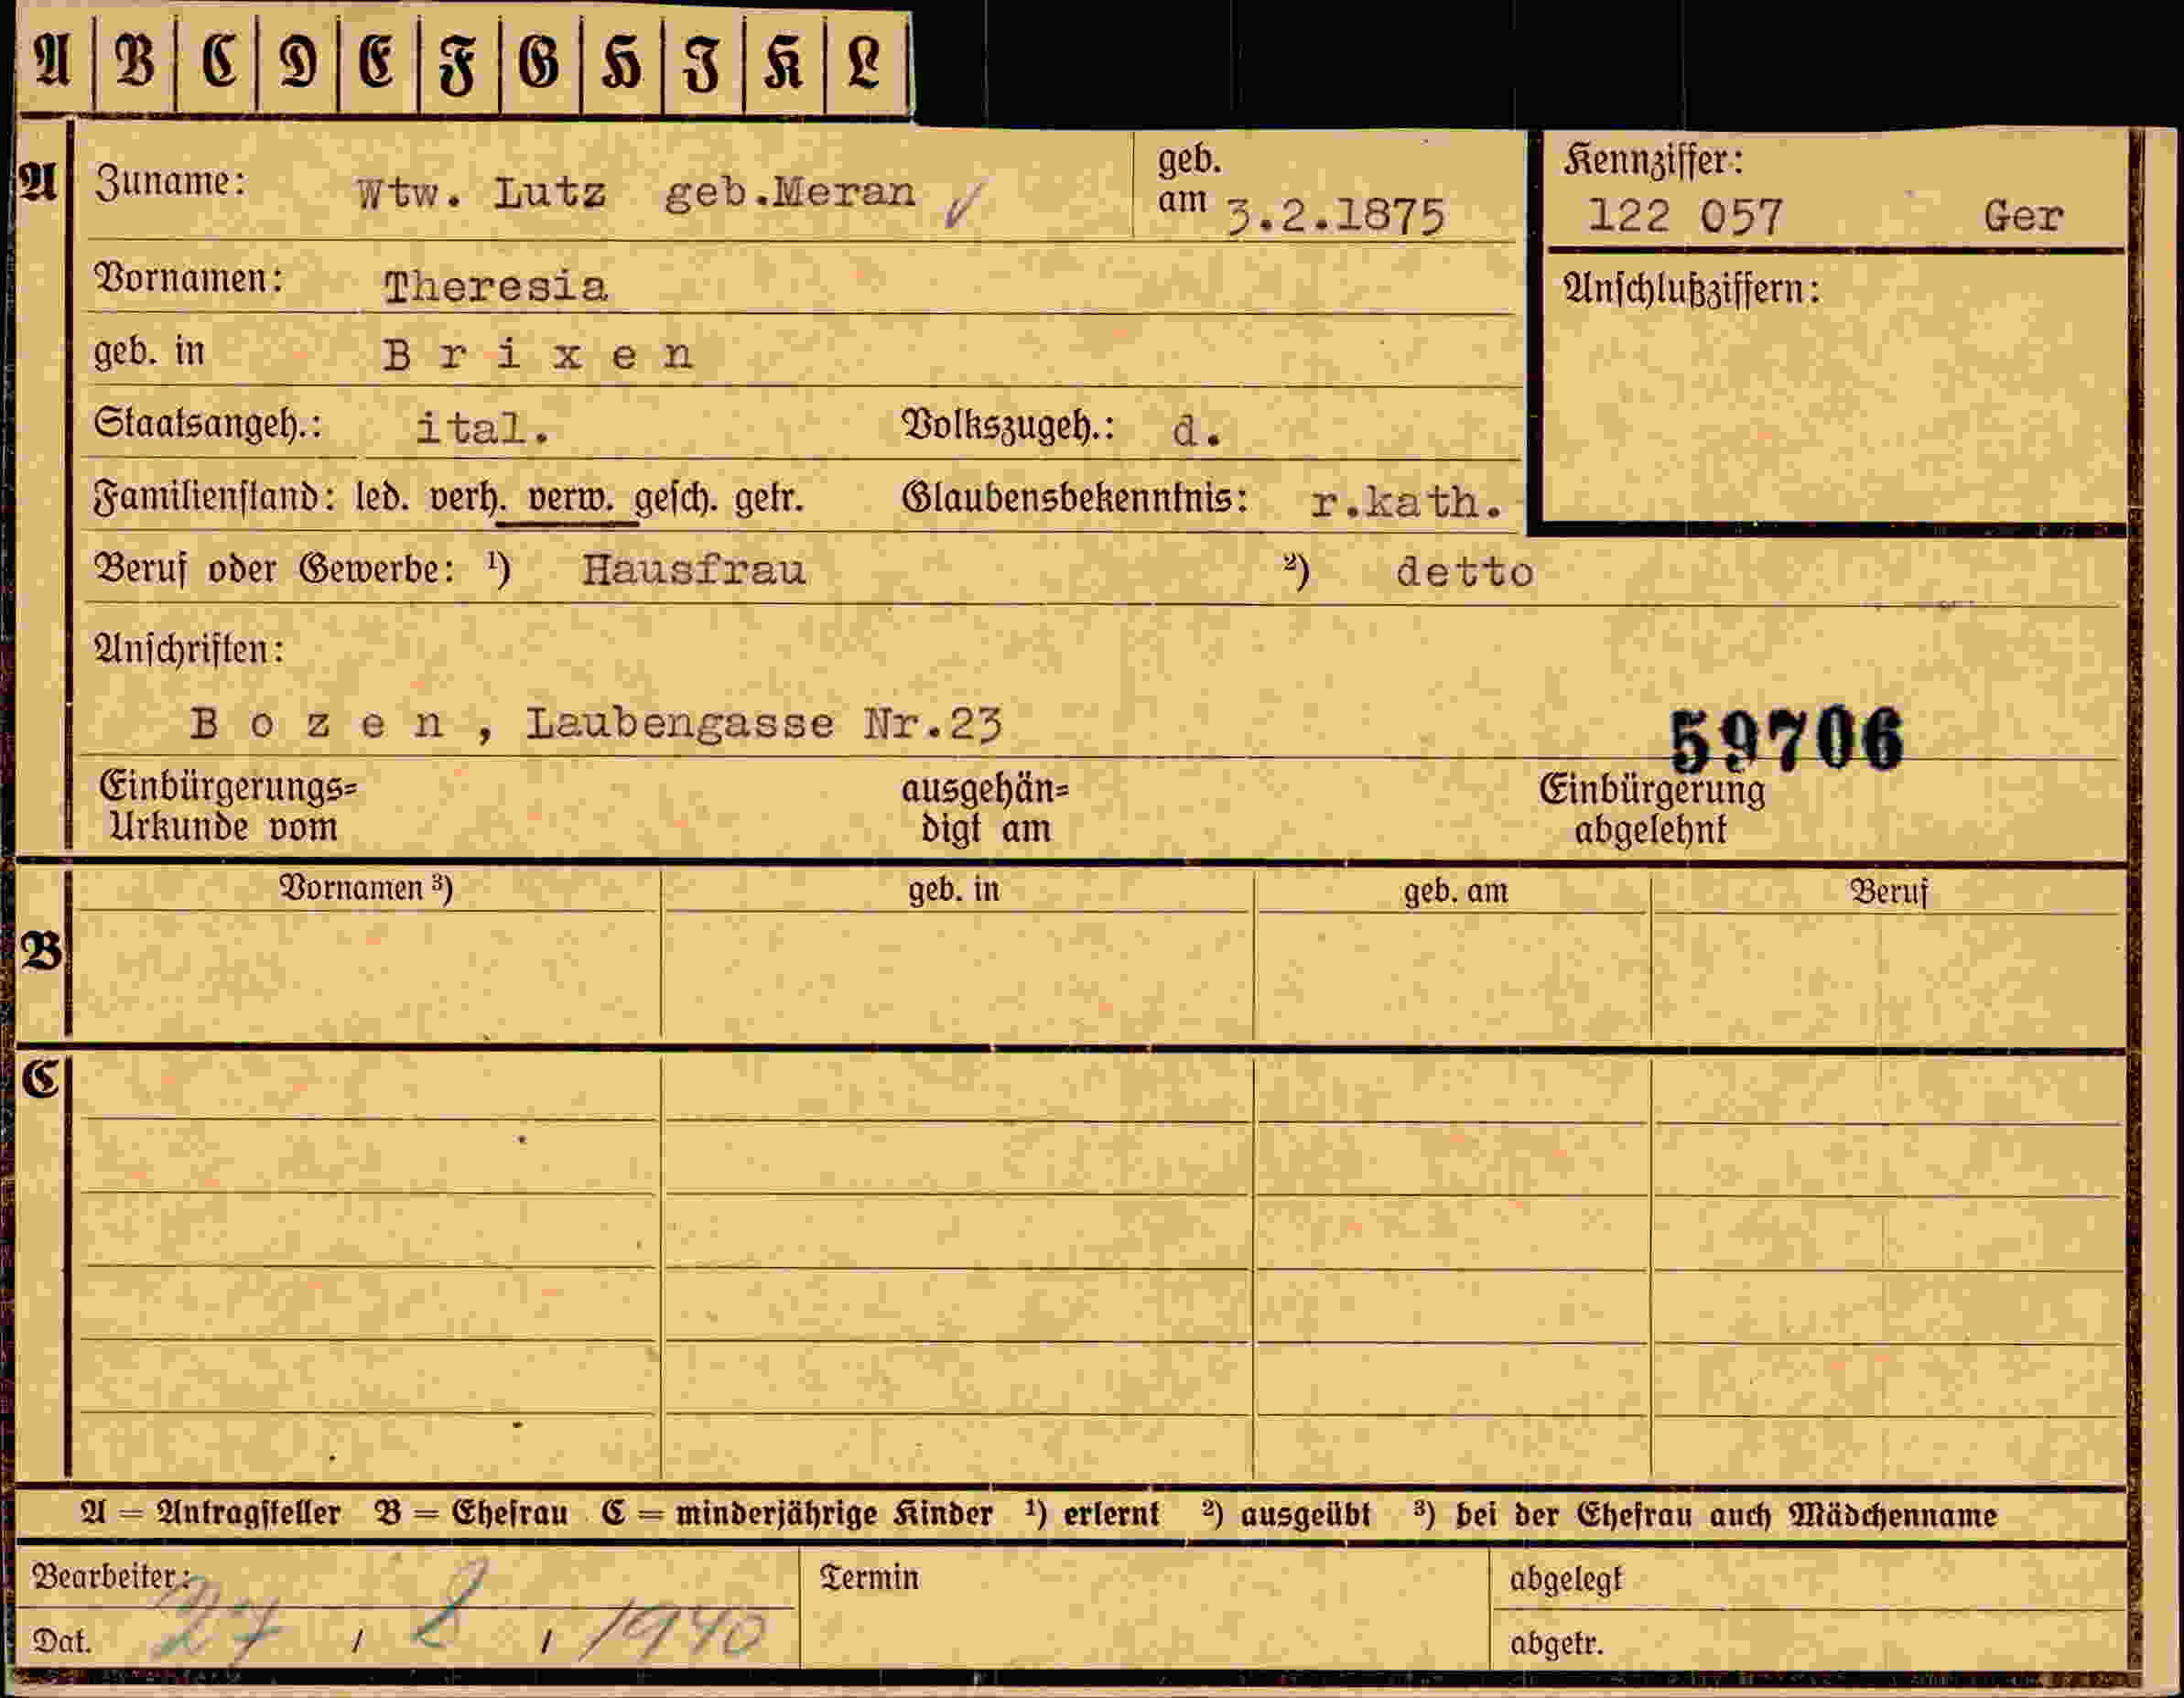 A B C D E F G H I K L
A Zuname: Wtw. Lutz geb.Meran ✓ geb. am 3.2.1875 Kennziffer: 122 057 Ger
Vornamen: Theresia Anschlußziffern:
geb. in B r i x e n
Staatsangeh.: ital. Volkszugeh.: d.
Familienstand: led. verh. verw. gesch. getr. Glaubensbekenntnis: r.kath.
Beruf oder Gewerbe: ¹) Hausfrau ²) detto
Anschriften:
B o z e n , Laubengasse Nr.23 59706
Einbürgerungs= ausgehän= Einbürgerung
Urkunde vom digt am abgelehnt
Vornamen ³) geb. in geb. am Beruf
B
C
A = Antragsteller B = Ehefrau C = minderjährige Kinder ¹) erlernt ²) ausgeübt ³) bei der Ehefrau auch Mädchenname
Bearbeiter: Termin abgelegt
Dat. 27 / 8 / 1940 abgetr.